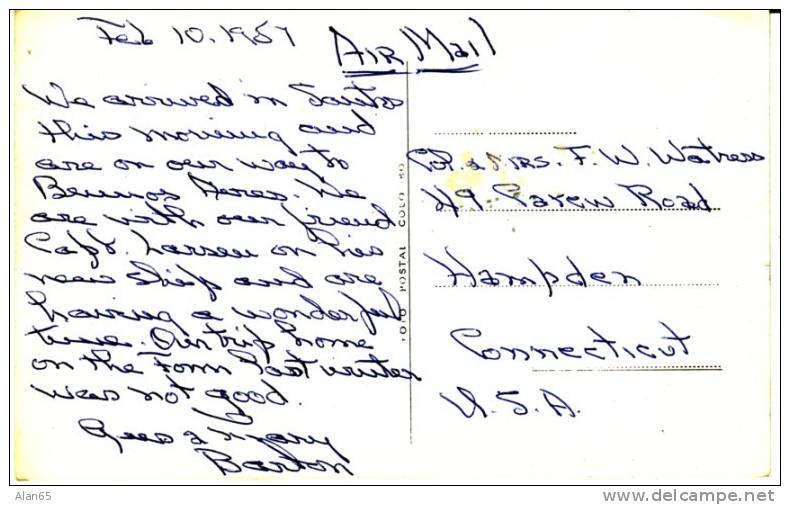 Feb 10. 1957
AIR Mail
We arrived in Santos
this morning and
are on our way to
Beunos Aeres. We
are with our friend
Capt. Larsen on his
new ship and are
having a wonderful
time. Our trip home
on the Form last winter
was not good.
& Mary
Barton
FOTO POSTAL COLOMBO
Col. & MRS. F. W. Watress
49 Carew Road
Hampden
Connecticut
U.S.A.
Alan65
www.delcampe.net